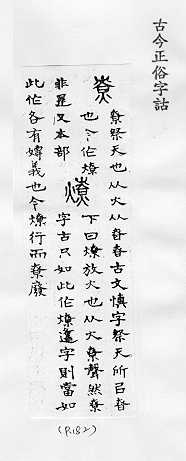 古今正俗字詁
尞
尞祭天也从火从昚昚古文慎字祭天所㠯昚
也今作燎
燎
下曰燎放火也从火尞聲然尞
非是又本部
字古只如此作燎字則當如
此作各有嫥義也今燎行而尞廢
(P.182)